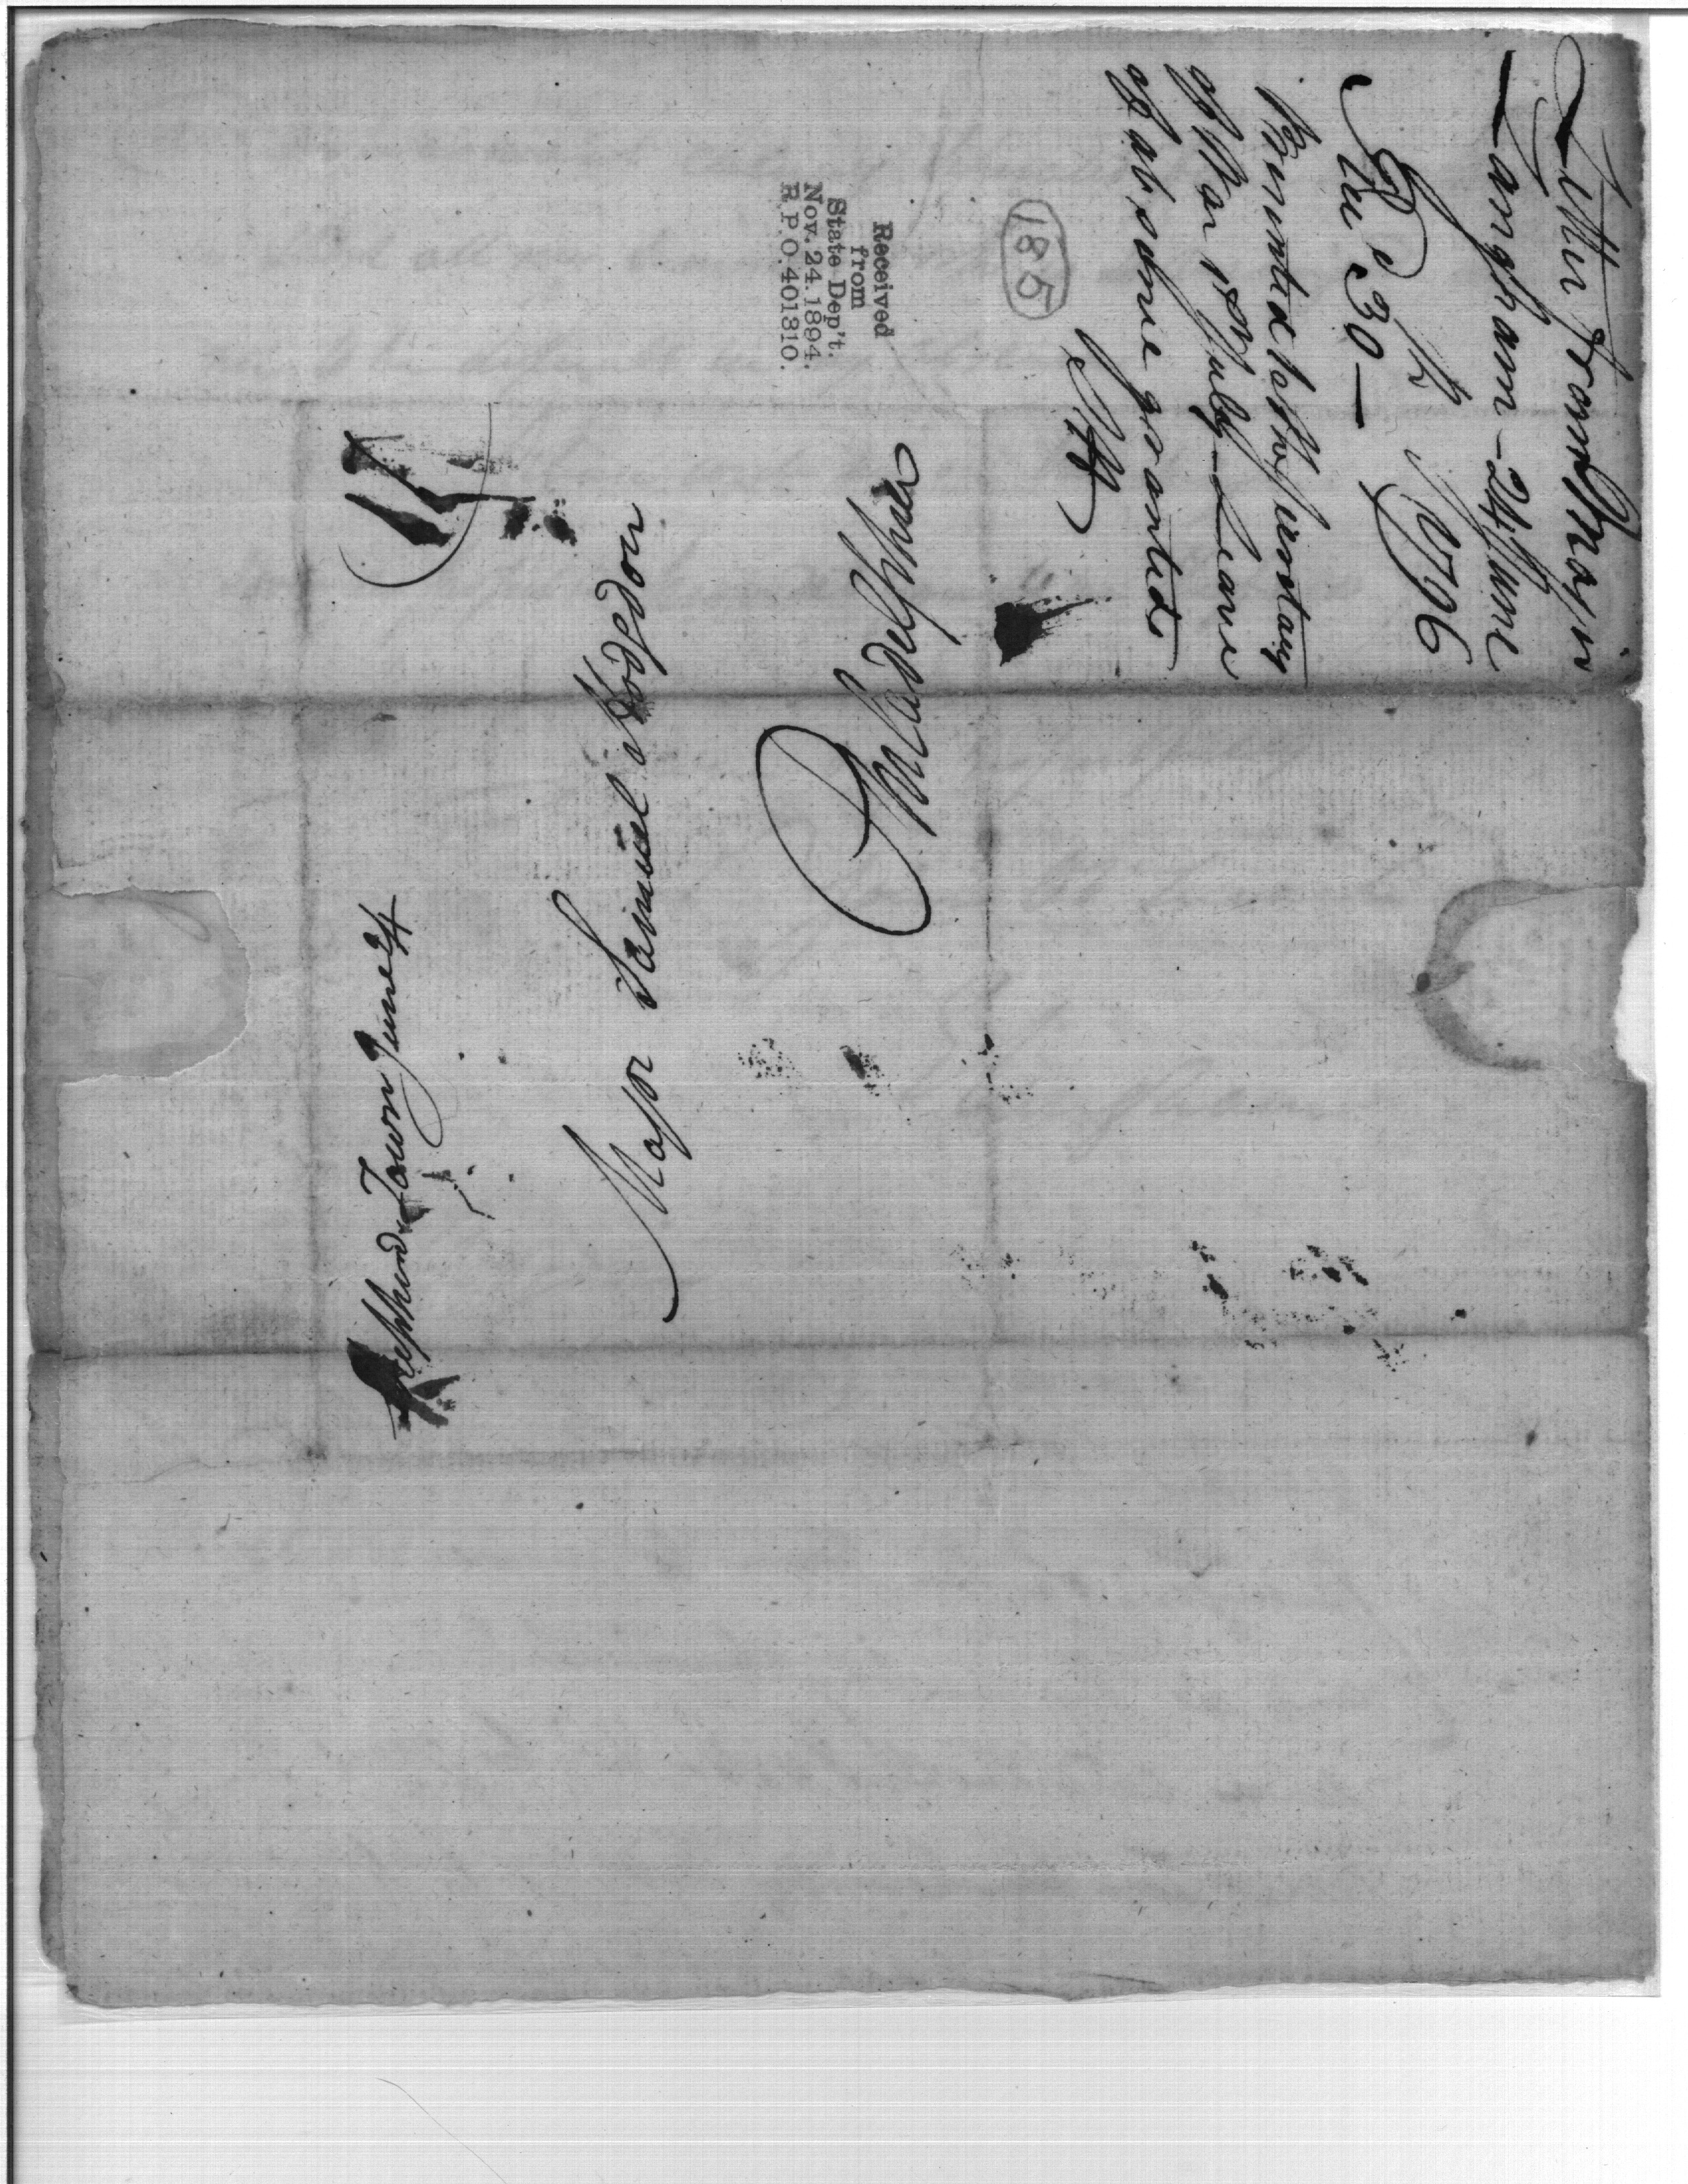 Letter from Major
Langham - 24 June
1796
Rec'd 30 -
Presented to the Secretary
of War 1st July - Leave
of absence granted
SH
185
Received
from
State Dep't.
Nov. 24. 1894.
R.P.O. 401310.
Shepherds Town June 24
Major Samuel Hodgdon
Philadelphia